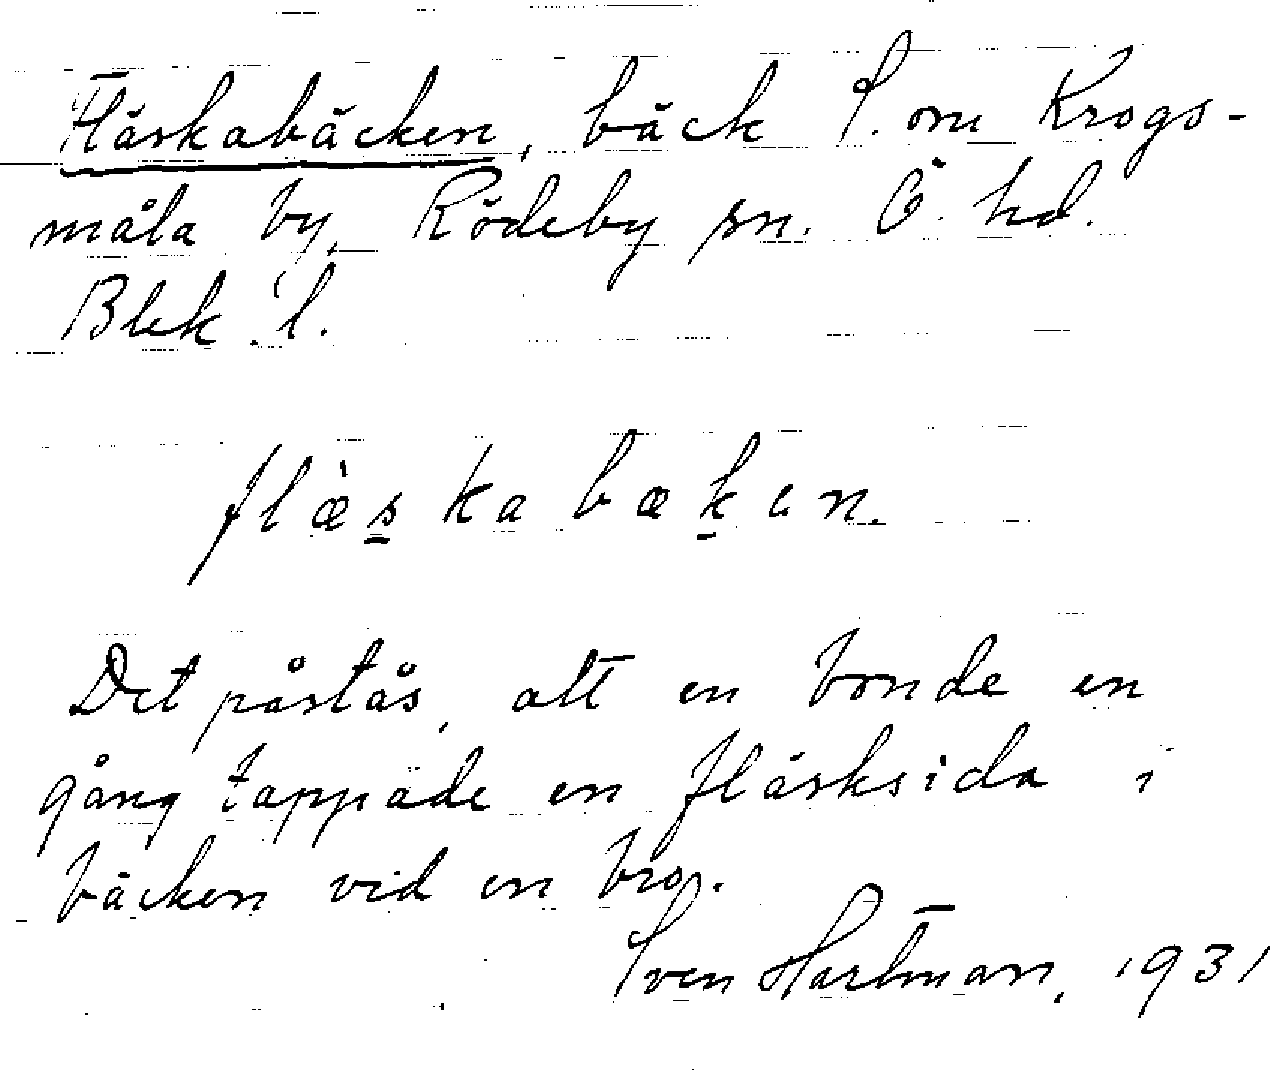 Fläskabäcken, bäck S. om Krogs-
måla by, Rödeby sn. Ö. hd.
Blek. l.
flæ̀s̲kabæk̲en.
Det påstås, att en bonde en
gång tappade en fläsksida i
bäcken vid en bro.
Sven Hartman, 1931